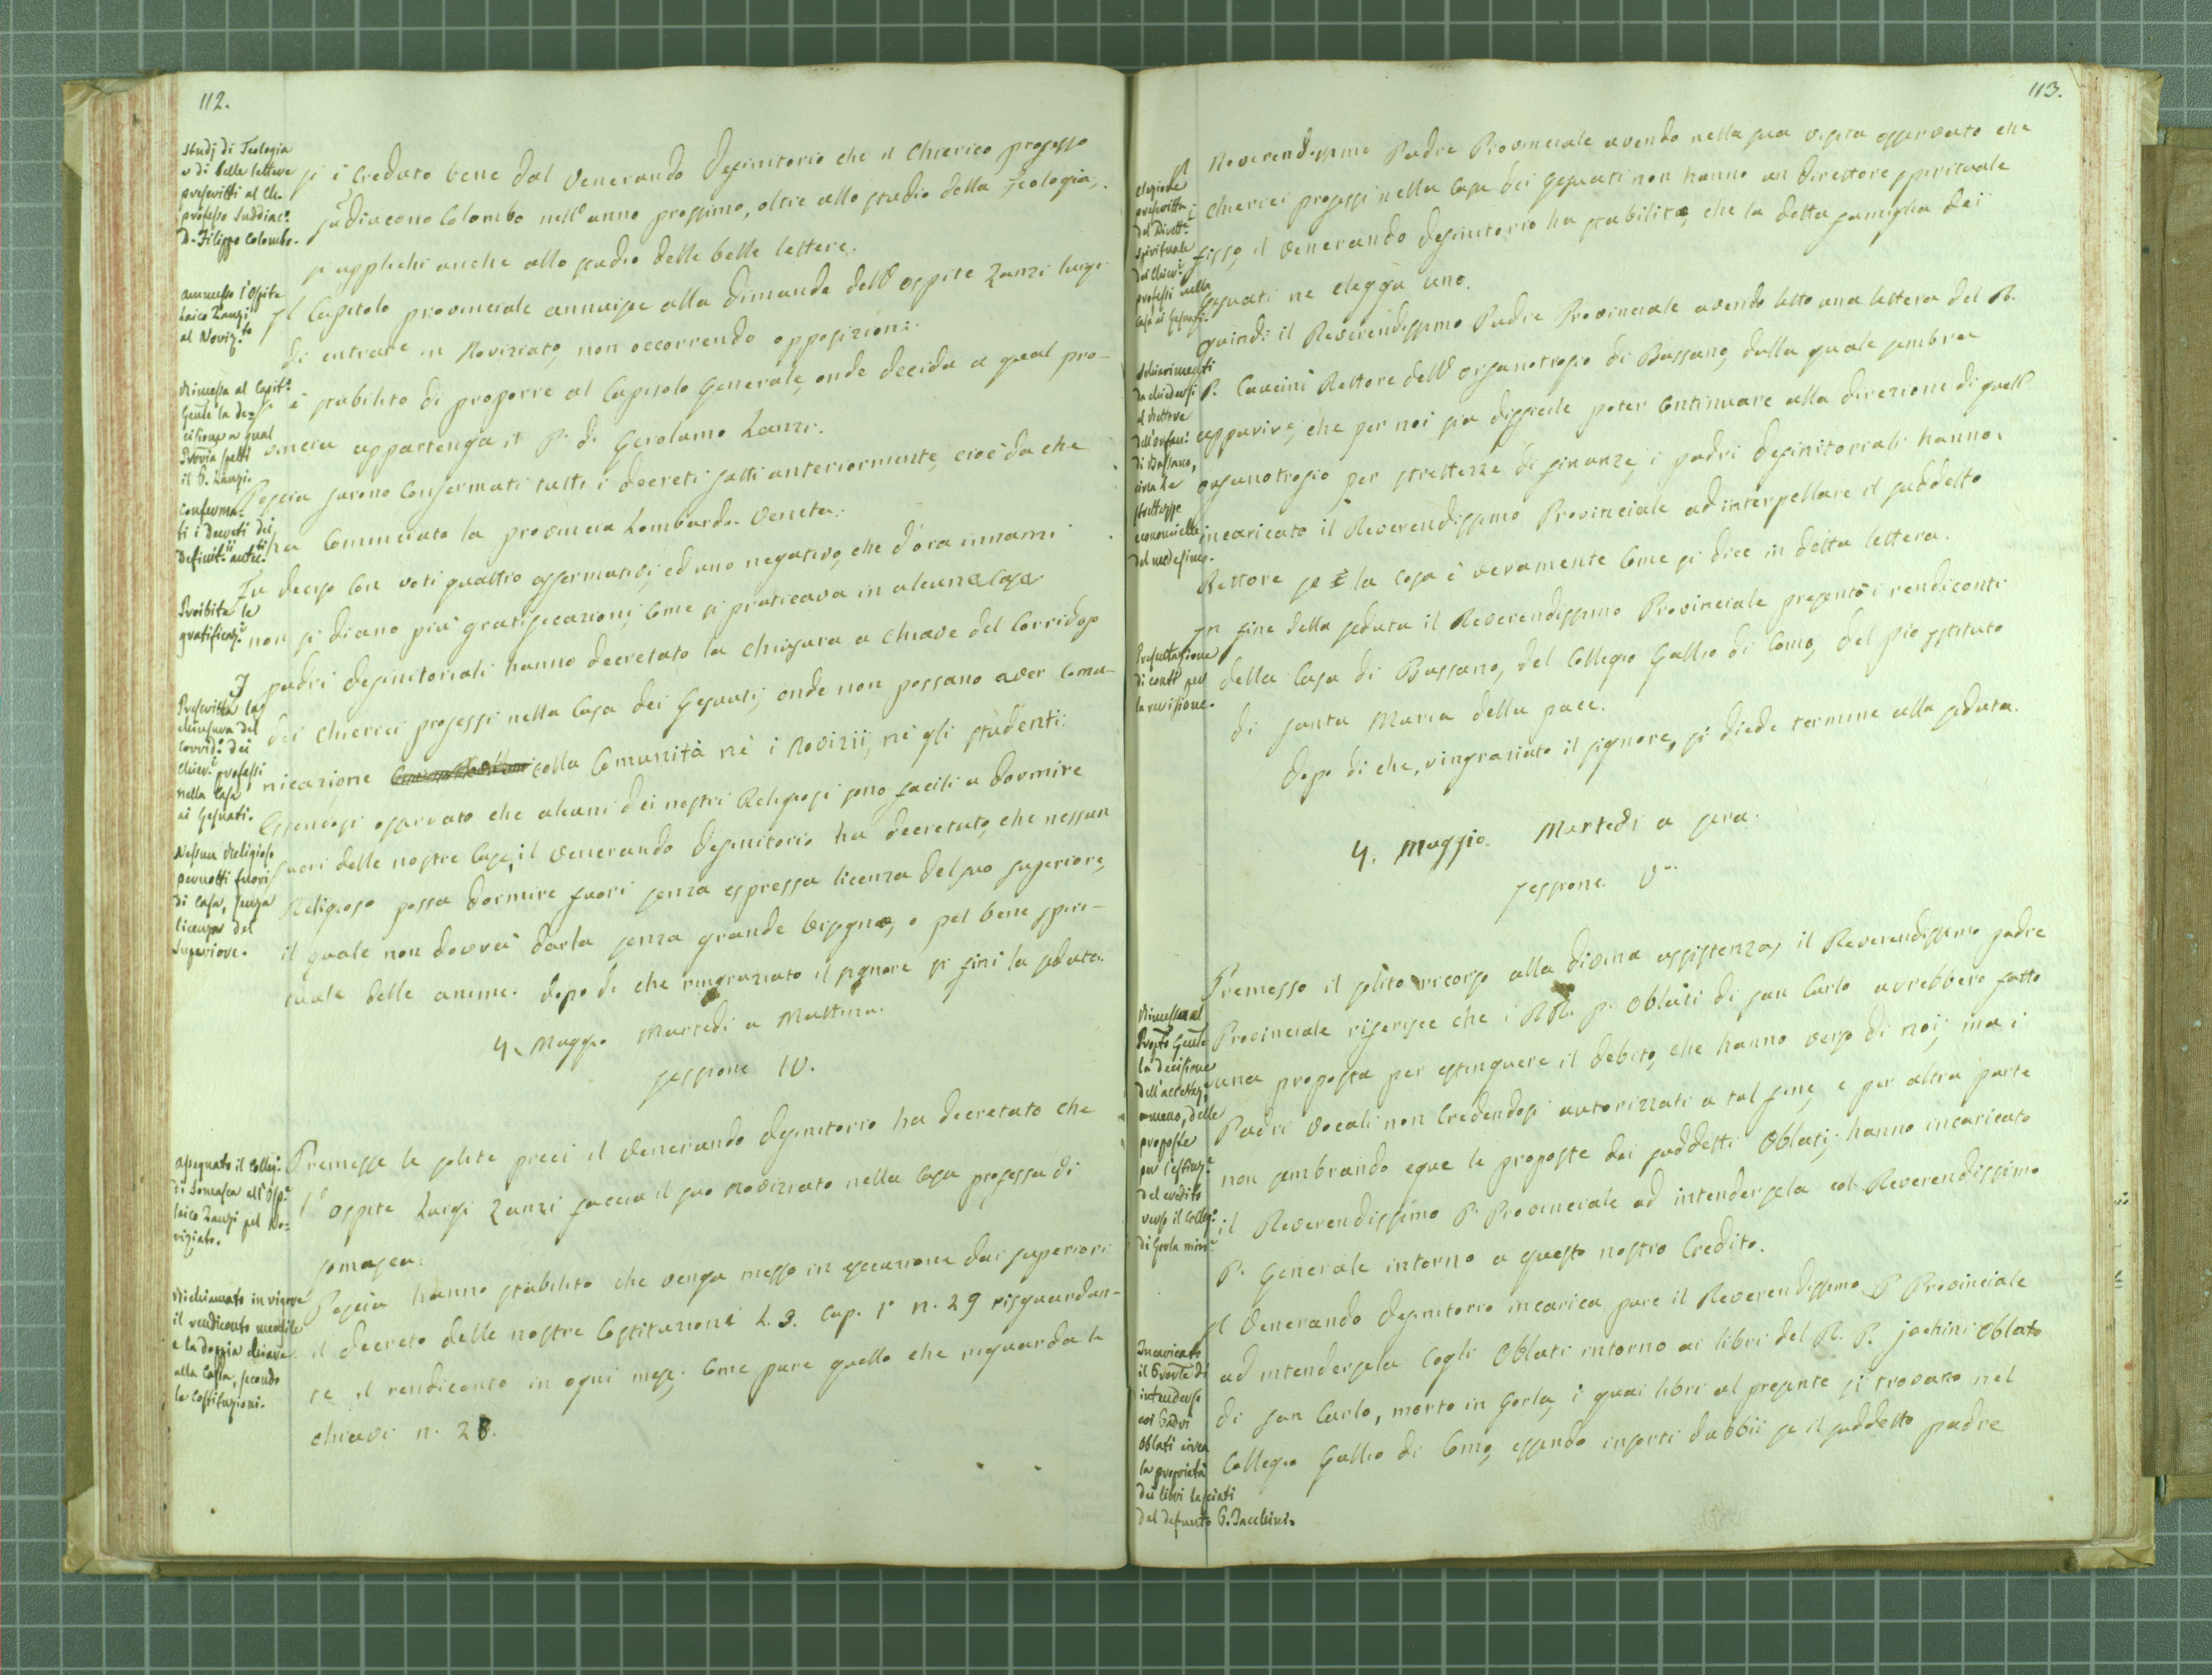 112.
Studj di Teologia
e di belle lettere
prescritti al Ch.
professo Suddiac.
D. Filippo Colombo.
si è creduto bene dal Venerando Definitorio che il Chierico professo
sudiacono Colombo nell'anno prossimo, oltre allo studio della Teologia,
si applichi anche allo studio delle belle lettere.
Ammesso l'Ospite
laico Zanzi
al Noviz.to
Il Capitolo provinciale annuisse alla dimanda dell'ospite Zanzi luigi
di entrare in Noviziato, non occorrendo opposizioni.
Rimessa al Capit.
Gente la de=
cisione a qual
Provia spetti
il P. Zanzi.
si è stabilito di proporre al Capitolo Generale, onde decida a qual pro-
vincia appartenga il P. d. Gerolamo Zanzi.
Conferma-
ti i Decreti dei
Definit.ii antec.ti
Poscia furono confermati tutti i decreti fatti anteriormente, cioè da che
ha Cominciato la provincia Lombardo-Veneta.
Proibite le
gratificaz.i
Fu deciso con voti quattro affermativi, ed uno negativo, che d'ora innanzi
non si diano più gratificazioni, come si praticava in alcuna Casa.
Prescritta la
chiusura del
Corrid. dei
Chier.i professi
nella Casa
ai Gesuati.
I padri definitoriali hanno decretato la chiusura a chiave del Corridojo
dei Chierici professi nella Casa dei Gesuati, onde non possano aver comu-
nicazione colla Comunità nè i Novizii, nè gli studenti.
Nessun Religioso
pernotti fuori
di Casa, senza
licenza del
Superiore.
Essendosi osservato che alcuni dei nostri Religiosi sono facili a dormire
fuori delle nostre Case, il Venerando Definitorio ha decretato, che nessun
Religioso possa dormire fuori senza espressa licenza del suo superiore,
il quale non dovrà darla senza grande bisogno, o pel bene spiri-
tuale delle anime. Dopo di che ringraziato il signore si finì la seduta.
4. Maggio Martedi a Mattina.
sessione IV.
Assegnato il Colleg.
di Somasca all'Osp.e
laico Zanzi pel No=
viziato.
Premesse le solite preci il Venerando Definitorio ha decretato che
l'ospite Luigi Zanzi faccia il suo Noviziato nella Casa professa di
somasca.
Richiamato in vigore
il rendiconto mensile
e la doppia chiave
alla Cassa, secondo
le Costituzioni.
Poscia hanno stabilito che venga messo in esecuzione dai superiori
il decreto delle nostre Costituzioni L. 3. Cap. 1° n. 29 risguardan-
te il rendiconto in ogni mese. Come pure quello che riguarda le
chiavi n. 28.
113.
Elezione
prescritta
del Dirett.e
spirituale
dei Chier.i
professi nella
Casa ai Gesuati.
Il Reverendissimo Padre Provinciale avendo nella sua visita osservato che
i Chierici professi nella Casa dei Gesuati non hanno un Direttore spirituale
fisso, il Venerando Definitorio ha stabilito, che la detta famiglia dei
Gesuati ne elegga uno.
Schiarimenti
da chiedersi
al Rettore
dell'Orfan.
di Bassano,
circa le
strettezze
economiche
del medesimo.
Quindi il Reverendissimo Padre Provinciale avendo letto una lettera del R.
P. Caucini Rettore dell'orfanotrofio di Bassano, dalla quale sembra
apparire, che per noi sia difficile poter continuare alla direzione di quell'
orfanotrofio per strettezze di finanze, i padri definitoriali hanno
incaricato il Reverendissimo Provinciale ad interpellare il suddetto
Rettore se la cosa è veramente come si dice in detta lettera.
Presentazione
di conti per
la revisione.
In fine della seduta il Reverendissimo Provinciale presentò i rendiconti
della Casa di Bassano, del Collegio Gallio di Como, del pio Istituto
di santa Maria della pace.
Dopo di che, ringraziato il signore, si diede termine alla seduta.
4. Maggio. Martedì a sera.
sessione V.
Rimessa al
Prop.to Gente
la decisione
dell'accettaz.e
o meno, delle
proposte
per l'estinz.e
del credito
verso il Colleg.
di Gorla min.e
Premesso il solito ricorso alla divina assistenza, il Reverendissimo padre
Provinciale riferisce che i RR. pp. Oblati di san Carlo avrebbero fatto
una proposta per estinguere il debito, che hanno verso di noi, ma i
Padri Vocali non credendosi autorizzati a tal fine, e per altra parte
non sembrando eque le proposte dei suddetti Oblati; hanno incaricato
il Reverendissimo P. Provinciale ad intendersela col Reverendissimo
P. Generale intorno a questo nostro Credito.
Incaricato
il Provle di
intendersi
coi Padri
Oblati circa
la proprietà
dei libri lasciati
dal defunto P. Jacchini.
Il Venerando Definitorio incarica pure il Reverendissimo P. Provinciale
ad intendersela cogli Oblati intorno ai libri del R. P. jachini Oblato
di san Carlo, morto in Gorla, i quai libri al presente si trovano nel
Collegio Gallio di Como, essendo insorti dubbii se il suddetto padre